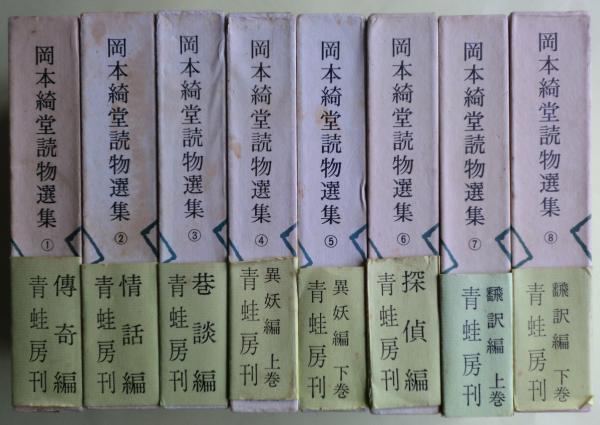 岡本綺堂読物選集 ①
傳奇編
青蛙房刊
岡本綺堂読物選集 ②
情話編
青蛙房刊
岡本綺堂読物選集 ③
巷談編
青蛙房刊
岡本綺堂読物選集 ④
異妖編 上巻
青蛙房刊
岡本綺堂読物選集 ⑤
異妖編 下巻
青蛙房刊
岡本綺堂読物選集 ⑥
探偵編
青蛙房刊
岡本綺堂読物選集 ⑦
飜訳編 上巻
青蛙房刊
岡本綺堂読物選集 ⑧
飜訳編 下巻
青蛙房刊